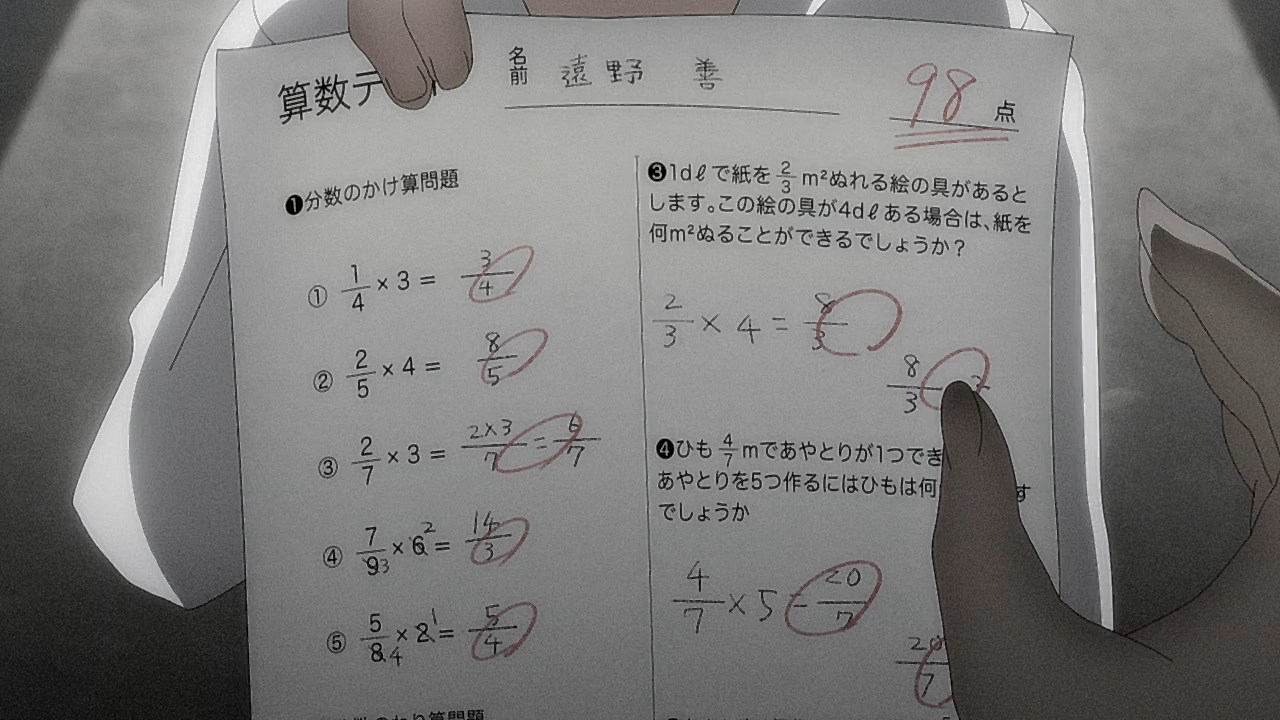 算数テ
名前 遠野 善
98点
❶分数のかけ算問題
① 1/4 × 3 = 3/4
② 2/5 × 4 = 8/5
③ 2/7 × 3 = 2×3/7 = 6/7
④ 7/9 3 × 6 2 = 14/3
⑤ 5/8 4 × 2 1 = 5/4
❸1dℓで紙を 2/3 m²ぬれる絵の具があると
します。この絵の具が4dℓある場合は、紙を
何m²ぬることができるでしょうか？
2/3 × 4 = 8/3
8/3
❹ひも 4/7 mであやとりが1つでき
あやとりを5つ作るにはひもは何
す
でしょうか
4/7 × 5 = 20/7
20/7
算問題